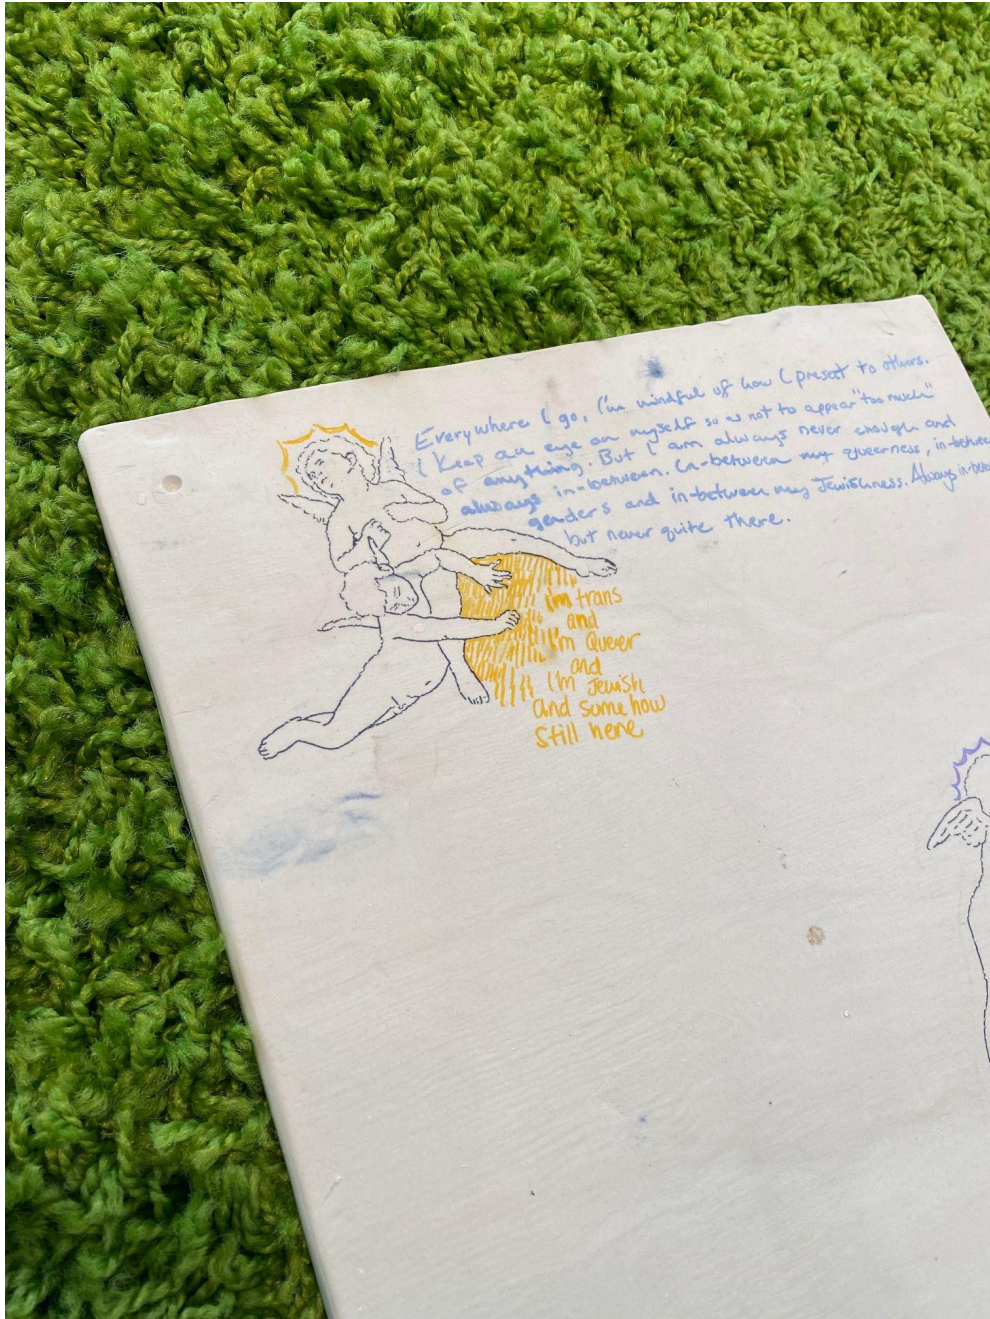 Everywhere I go, I'm mindful of how I present to others.
I keep an eye on myself so as not to appear "too much"
of anything. But I am always never enough and
always in-between. In-between my queerness, in-between
genders and in-between my Jewishness. Always in-betw
but never quite there.
i'm trans
and
I'm Queer
and
I'm Jewish
and somehow
still here